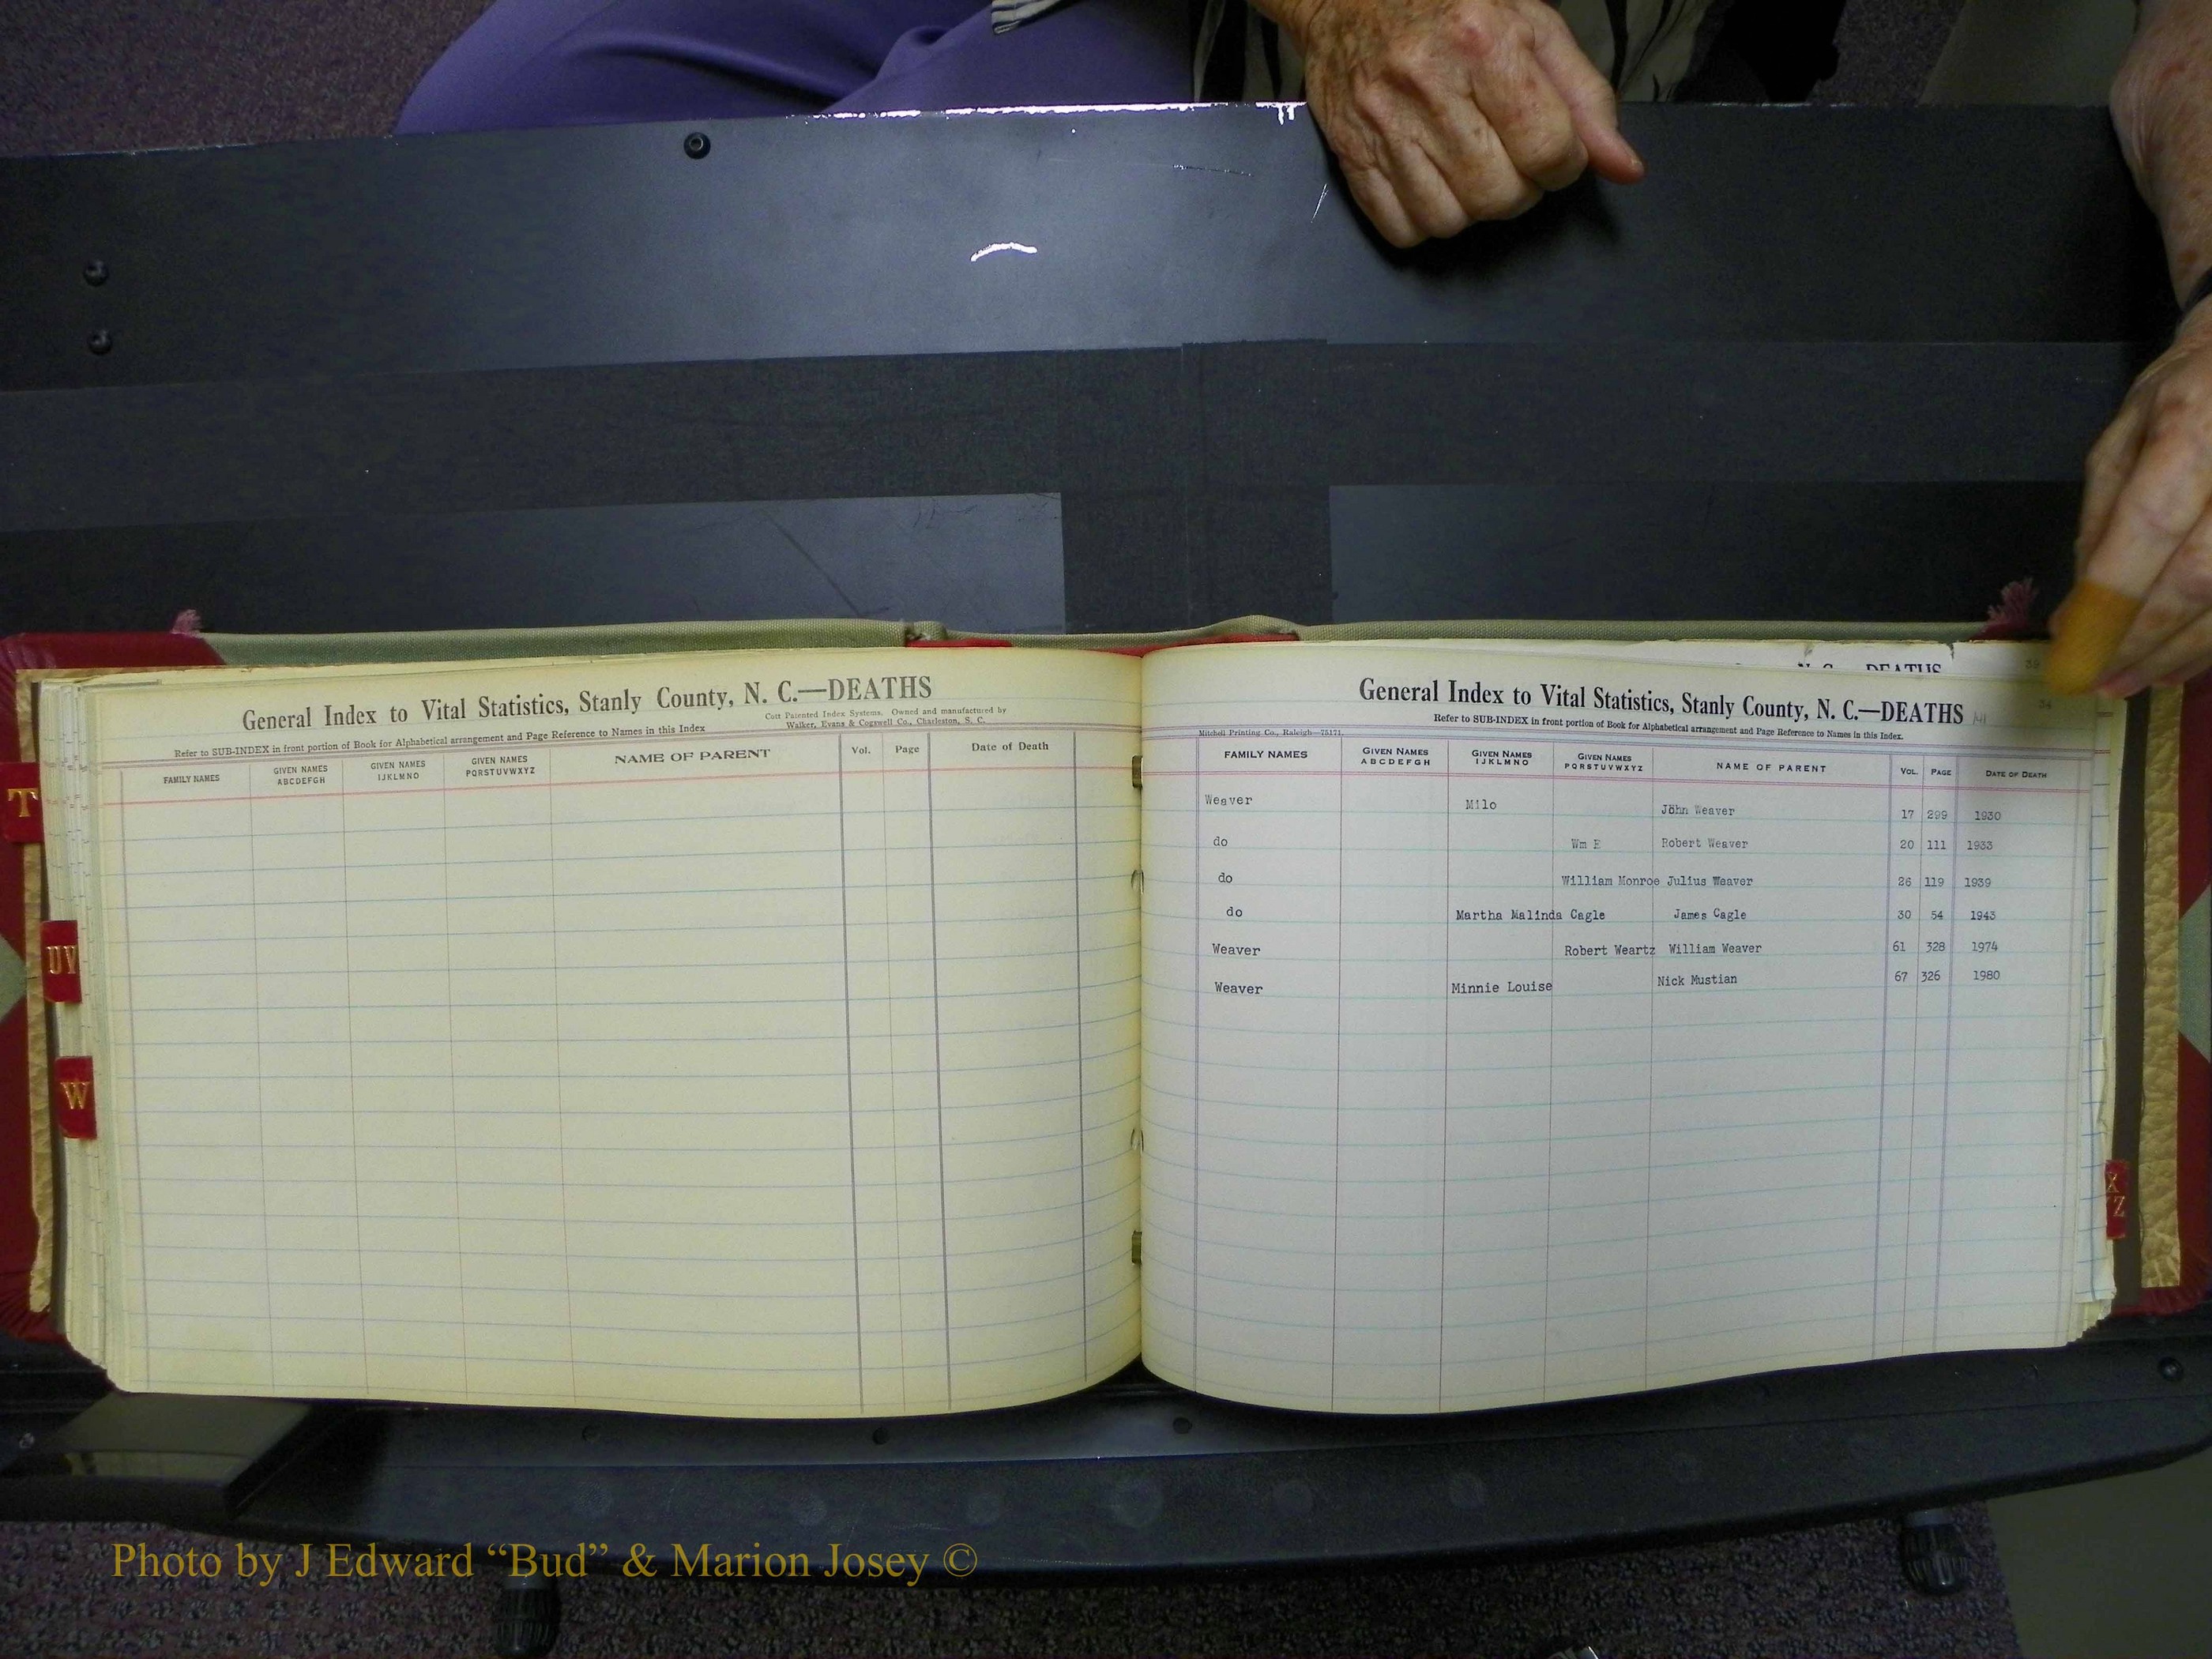 General Index to Vital Statistics, Stanly County, N. C.—DEATHS
Refer to SUB-INDEX in front portion of Book for Alphabetical arrangement and Page Reference to Names in this Index
Cott Patented Index Systems. Owned and manufactured by
Walker, Evans & Cogswell Co., Charleston, S. C.
FAMILY NAMES GIVEN NAMES ABCDEFGH GIVEN NAMES IJKLMNO GIVEN NAMES PQRSTUVWXYZ NAME OF PARENT Vol. Page Date of Death
T
UV
W
N. C.—DEATHS
39
General Index to Vital Statistics, Stanly County, N. C.—DEATHS 141
34
Refer to SUB-INDEX in front portion of Book for Alphabetical arrangement and Page Reference to Names in this Index.
Mitchell Printing Co., Raleigh—75171.
FAMILY NAMES GIVEN NAMES ABCDEFGH GIVEN NAMES IJKLMNO GIVEN NAMES PQRSTUVWXYZ NAME OF PARENT VOL. PAGE DATE OF DEATH
Weaver Milo John Weaver 17 299 1930
do Wm E Robert Weaver 20 111 1933
do William Monroe Julius Weaver 26 119 1939
do Martha Malinda Cagle James Cagle 30 54 1943
Weaver Robert Weartz William Weaver 61 328 1974
Weaver Minnie Louise Nick Mustian 67 326 1980
X
Z
Photo by J Edward “Bud” & Marion Josey ©